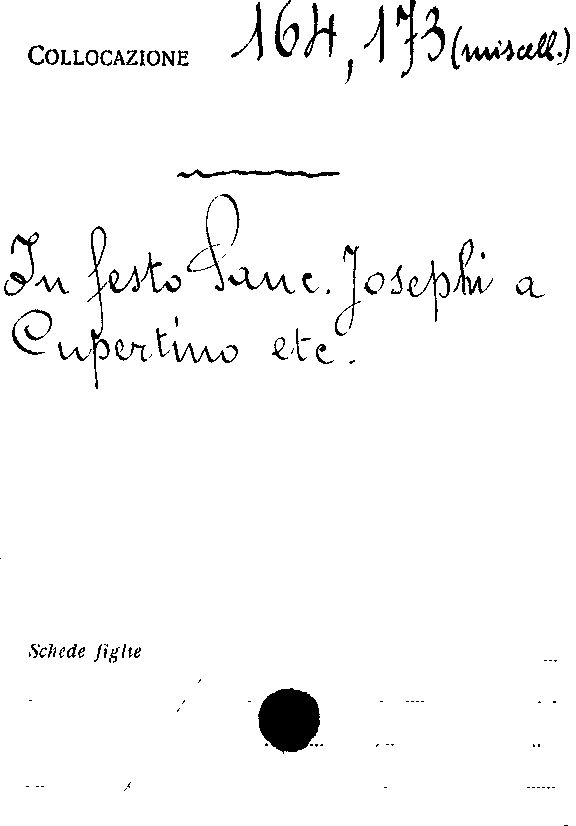 COLLOCAZIONE 164, 173 (miscell.)
In festo Sanc. Josephi a
Cupertino etc.
Schede figlie